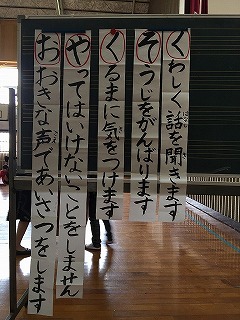 くわしく話を聞きます
そうじをがんばります
くるまに気をつけます
やってはいけないことをしません
おおきな声であいさつをします